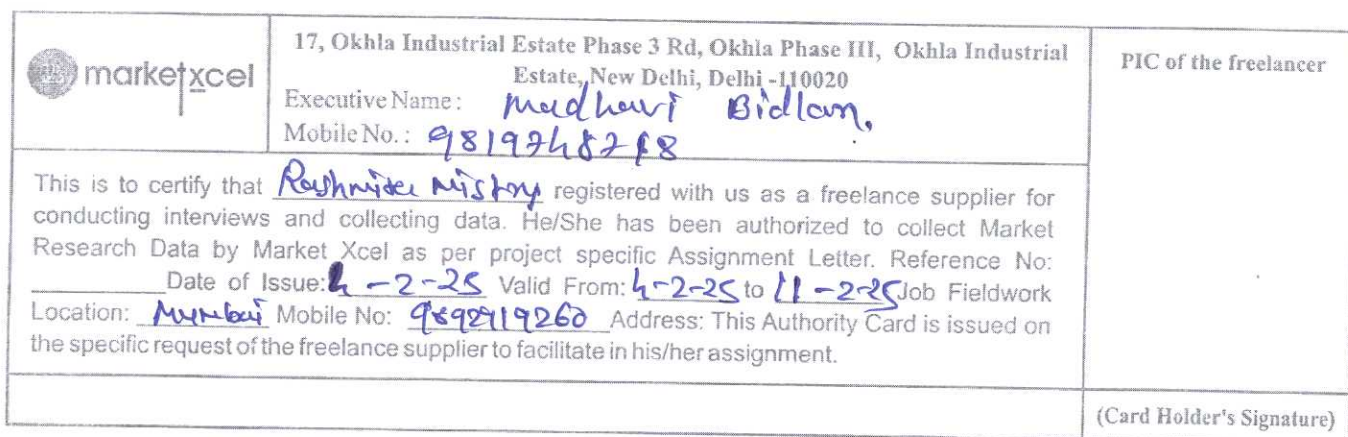 marketxcel
17, Okhla Industrial Estate Phase 3 Rd, Okhla Phase III, Okhla Industrial
Estate, New Delhi, Delhi -110020
Executive Name: Madhavi Bidlan,
Mobile No.:
PIC of the freelancer
This is to certify that Mistry registered with us as a freelance supplier for
conducting interviews and collecting data. He/She has been authorized to collect Market
Research Data by Market Xcel as per project specific Assignment Letter. Reference No:
Date of Issue: 4-2-25 Valid From: 4-2-25 to 11-2-25 Job Fieldwork
Location: Mumbai Mobile No: 9892919260 Address: This Authority Card is issued on
the specific request of the freelance supplier to facilitate in his/her assignment.
(Card Holder's Signature)